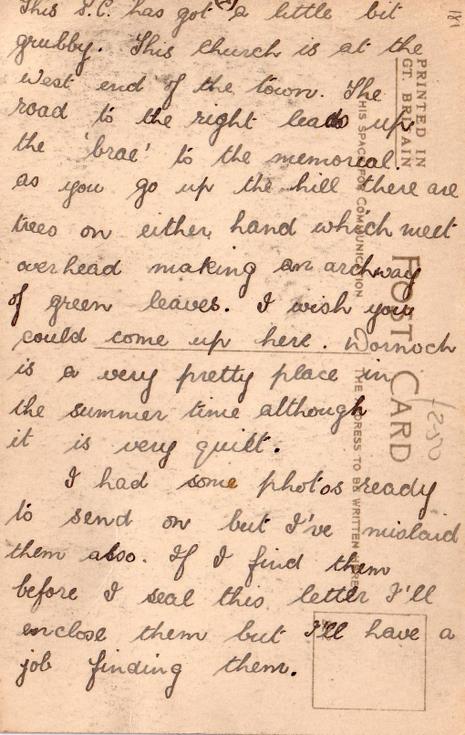 This P.C. has got a little bit
grubby. This church is at the
west end of the town. The
road to the right leads up
the 'brae' to the memorial.
as you go up the hill there are
trees on either hand which meet
overhead making an archway
of green leaves. I wish you
could come up here. Dornoch
is a very pretty place in
the summer time although
it is very quilt.
I had some photos ready
to send on but I've mislaid
them also. If I find them
before I seal this letter I'll
enclose them but I'll have a
job finding them.
PRINTED IN
GT. BRITAIN
POST CARD
THIS SPACE FOR COMMUNICATION
THE ADDRESS TO BE WRITTEN HERE